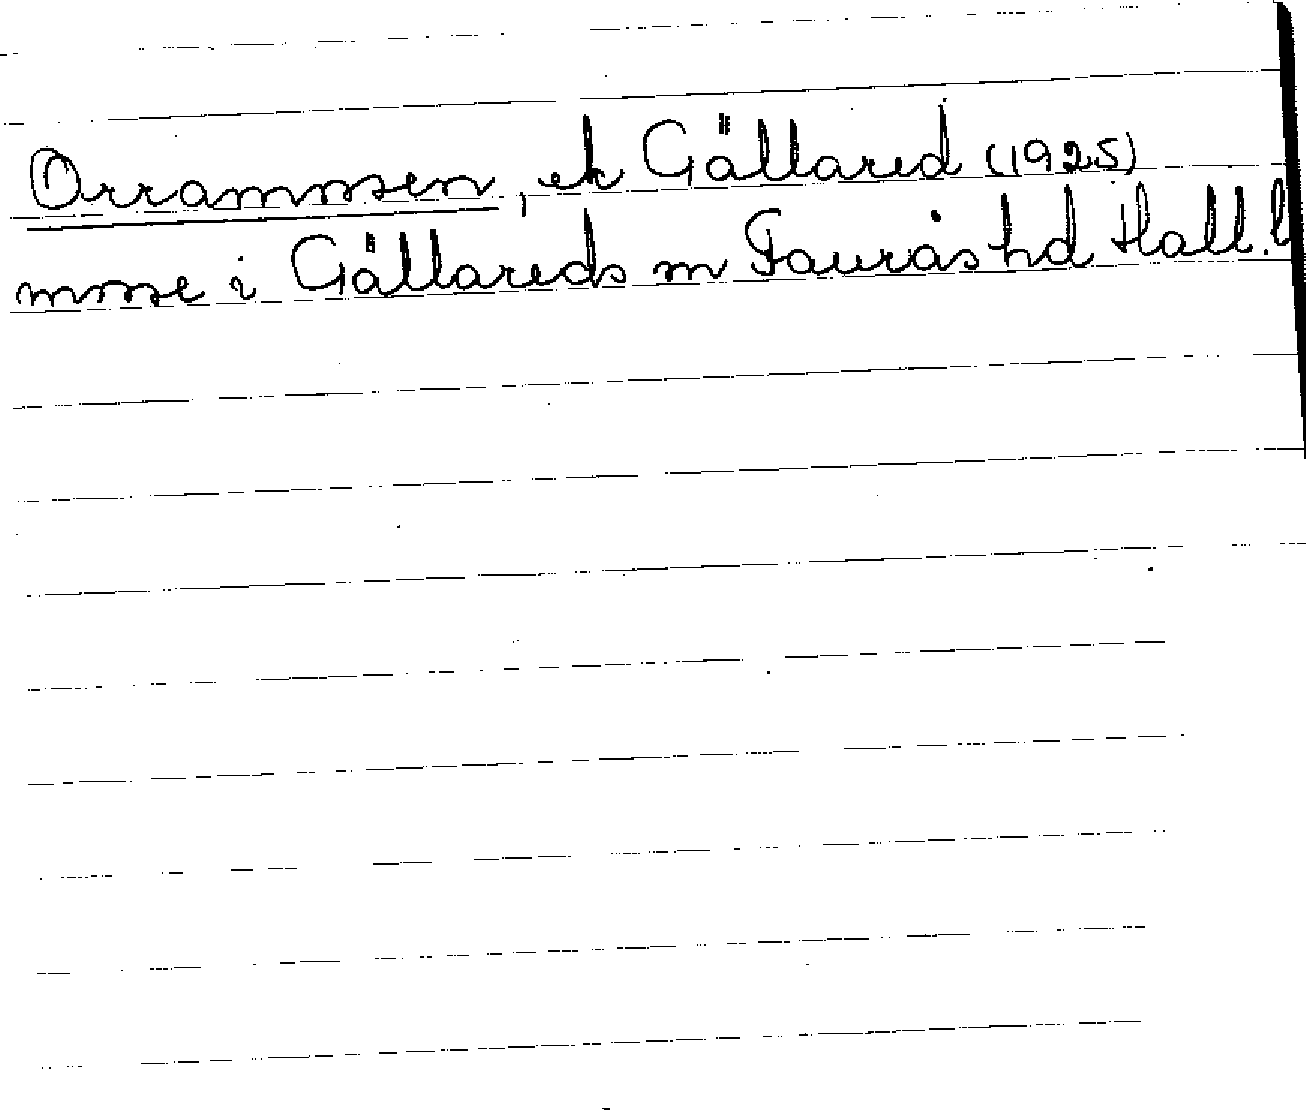 Orramossen, ek Gällared (1925)
mosse i Gällareds sn Faurås hd Hall. l